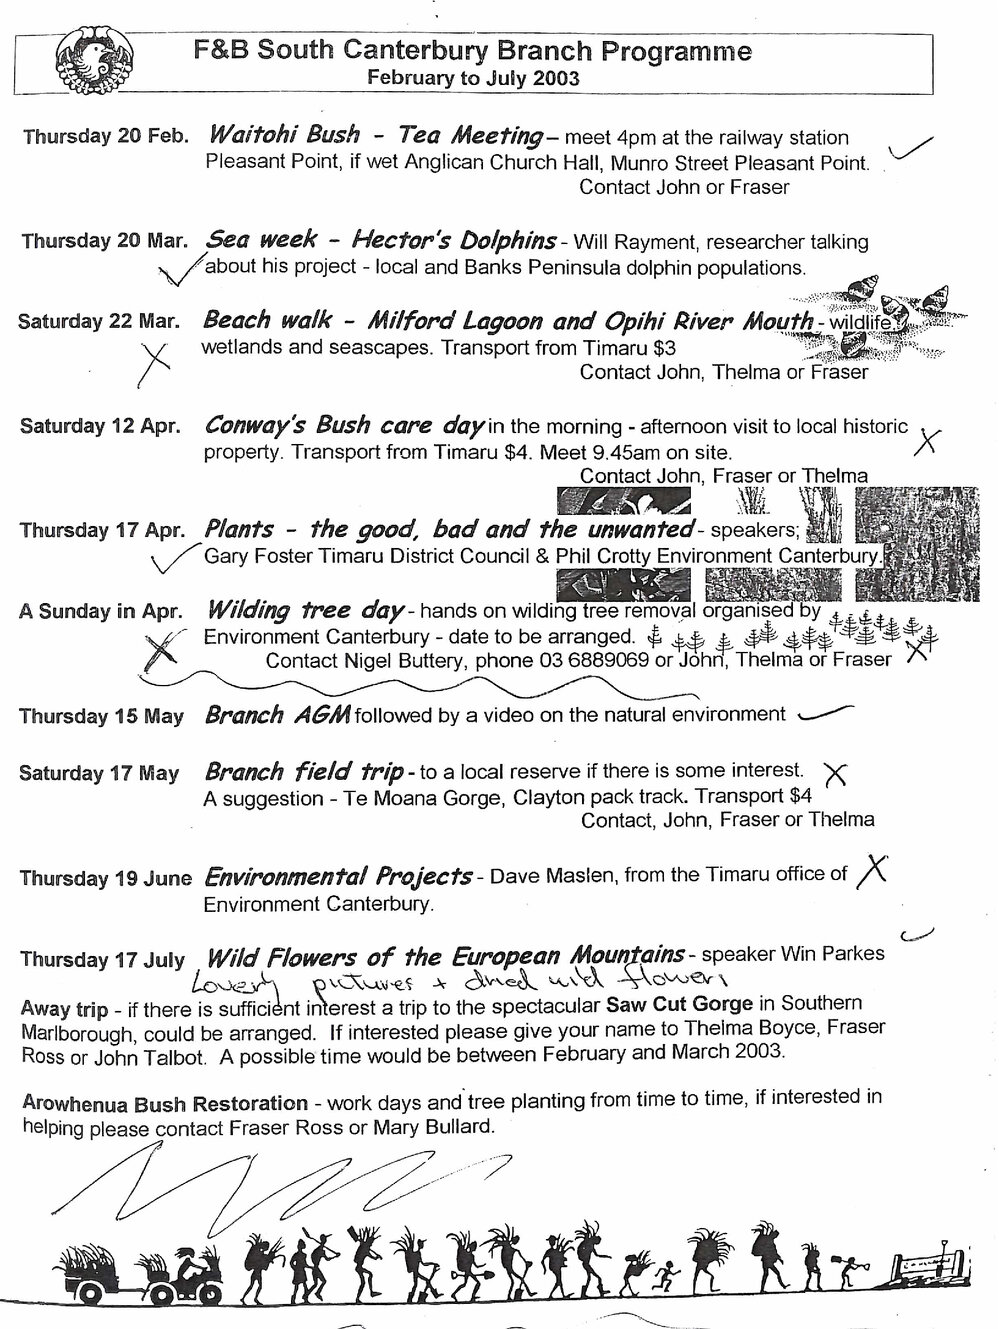 F&B South Canterbury Branch Programme
February to July 2003
Thursday 20 Feb. Waitohi Bush - Tea Meeting – meet 4pm at the railway station
Pleasant Point, if wet Anglican Church Hall, Munro Street Pleasant Point.
Contact John or Fraser
Thursday 20 Mar. Sea week - Hector's Dolphins - Will Rayment, researcher talking
about his project - local and Banks Peninsula dolphin populations.
Saturday 22 Mar. Beach walk - Milford Lagoon and Opihi River Mouth - wildlife,
wetlands and seascapes. Transport from Timaru $3
Contact John, Thelma or Fraser
Saturday 12 Apr. Conway's Bush care day in the morning - afternoon visit to local historic
property. Transport from Timaru $4. Meet 9.45am on site.
Contact John, Fraser or Thelma
Thursday 17 Apr. Plants - the good, bad and the unwanted - speakers;
Gary Foster Timaru District Council & Phil Crotty Environment Canterbury.
A Sunday in Apr. Wilding tree day - hands on wilding tree removal organised by
Environment Canterbury - date to be arranged.
Contact Nigel Buttery, phone 03 6889069 or John, Thelma or Fraser
Thursday 15 May Branch AGM followed by a video on the natural environment
Saturday 17 May Branch field trip - to a local reserve if there is some interest.
A suggestion - Te Moana Gorge, Clayton pack track. Transport $4
Contact, John, Fraser or Thelma
Thursday 19 June Environmental Projects - Dave Maslen, from the Timaru office of
Environment Canterbury.
Thursday 17 July Wild Flowers of the European Mountains - speaker Win Parkes
Lovely pictures + dried wild flowers
Away trip - if there is sufficient interest a trip to the spectacular Saw Cut Gorge in Southern
Marlborough, could be arranged. If interested please give your name to Thelma Boyce, Fraser
Ross or John Talbot. A possible time would be between February and March 2003.
Arowhenua Bush Restoration - work days and tree planting from time to time, if interested in
helping please contact Fraser Ross or Mary Bullard.